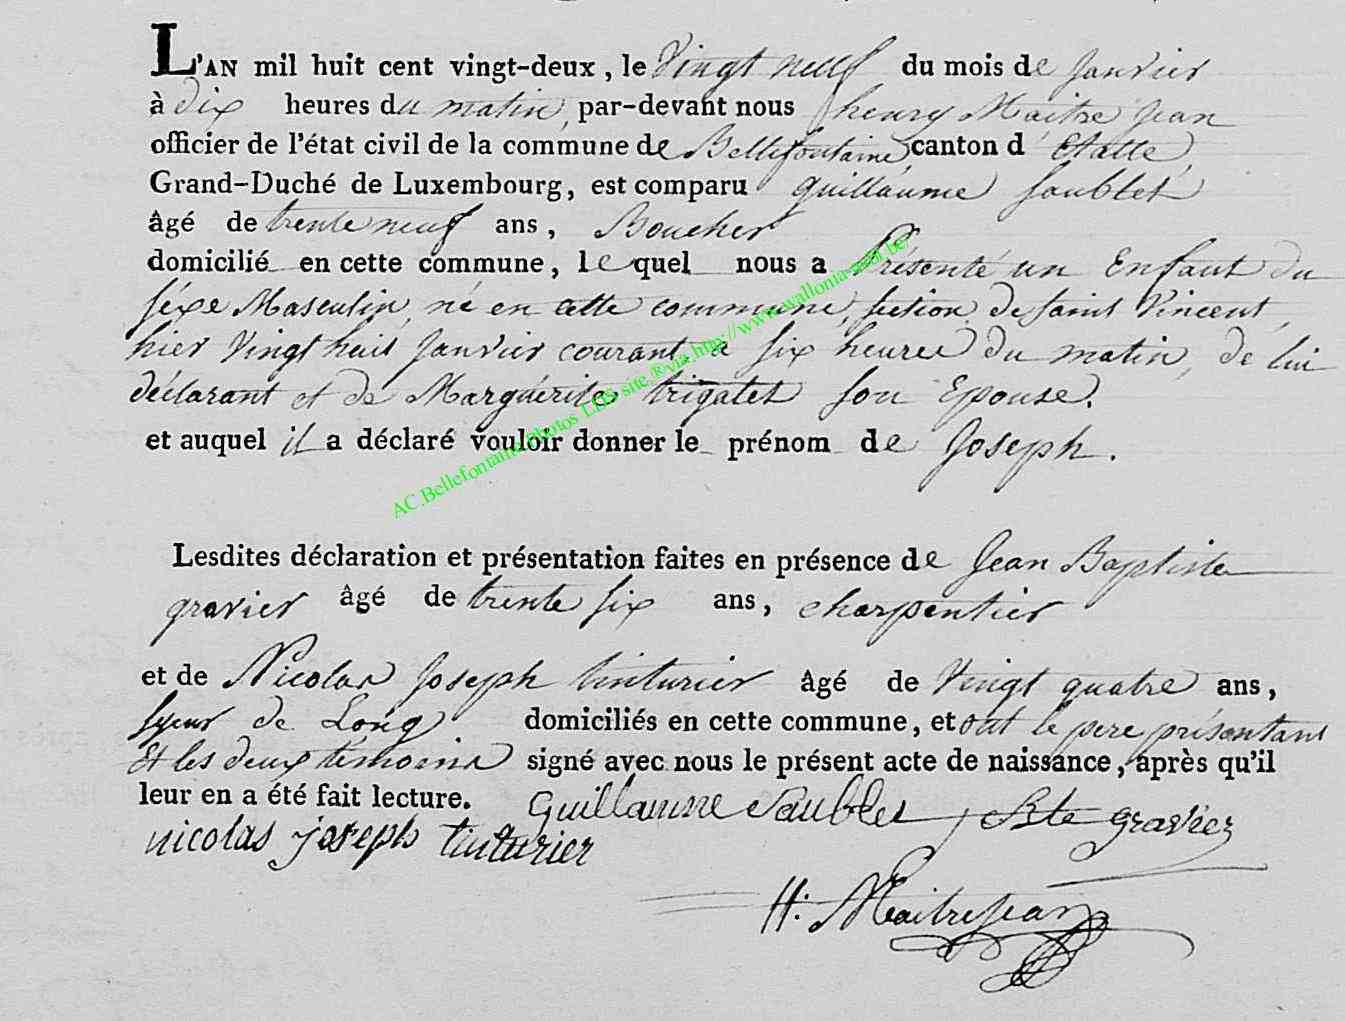 L'AN mil huit cent vingt-deux, le Vingt neuf du mois de Janvier
à dix heures du matin, par-devant nous henry Maitre Jean
officier de l'état civil de la commune de Bellefontaine canton d'Etalle,
Grand-Duché de Luxembourg, est comparu guillaume Saublet
âgé de trente neuf ans, Boucher
domicilié en cette commune, lequel nous a Présenté un Enfant du
séxe Masculin, né en cette commune, section de saint Vincent,
hier Vingt huit Janvier courant a six heures du matin, de lui
déclarant et de Marguérite trigalet son Epouse.
et auquel il a déclaré vouloir donner le prénom de Joseph.
AC.Bellefontaine Photos LDS site ® via http://www.wallonia-asbl.be/
Lesdites déclaration et présentation faites en présence de Jean Baptiste
gravier âgé de trente six ans, charpentier
et de Nicolas Joseph tinturier âgé de Vingt quatre ans,
syeur de Long domiciliés en cette commune, et ont le pere présentant
Et les deux témoins signé avec nous le présent acte de naissance, après qu'il
leur en a été fait lecture. Guillaume Saublet, Bte gravier
nicolas joseph tinturier
H: MaitreJean